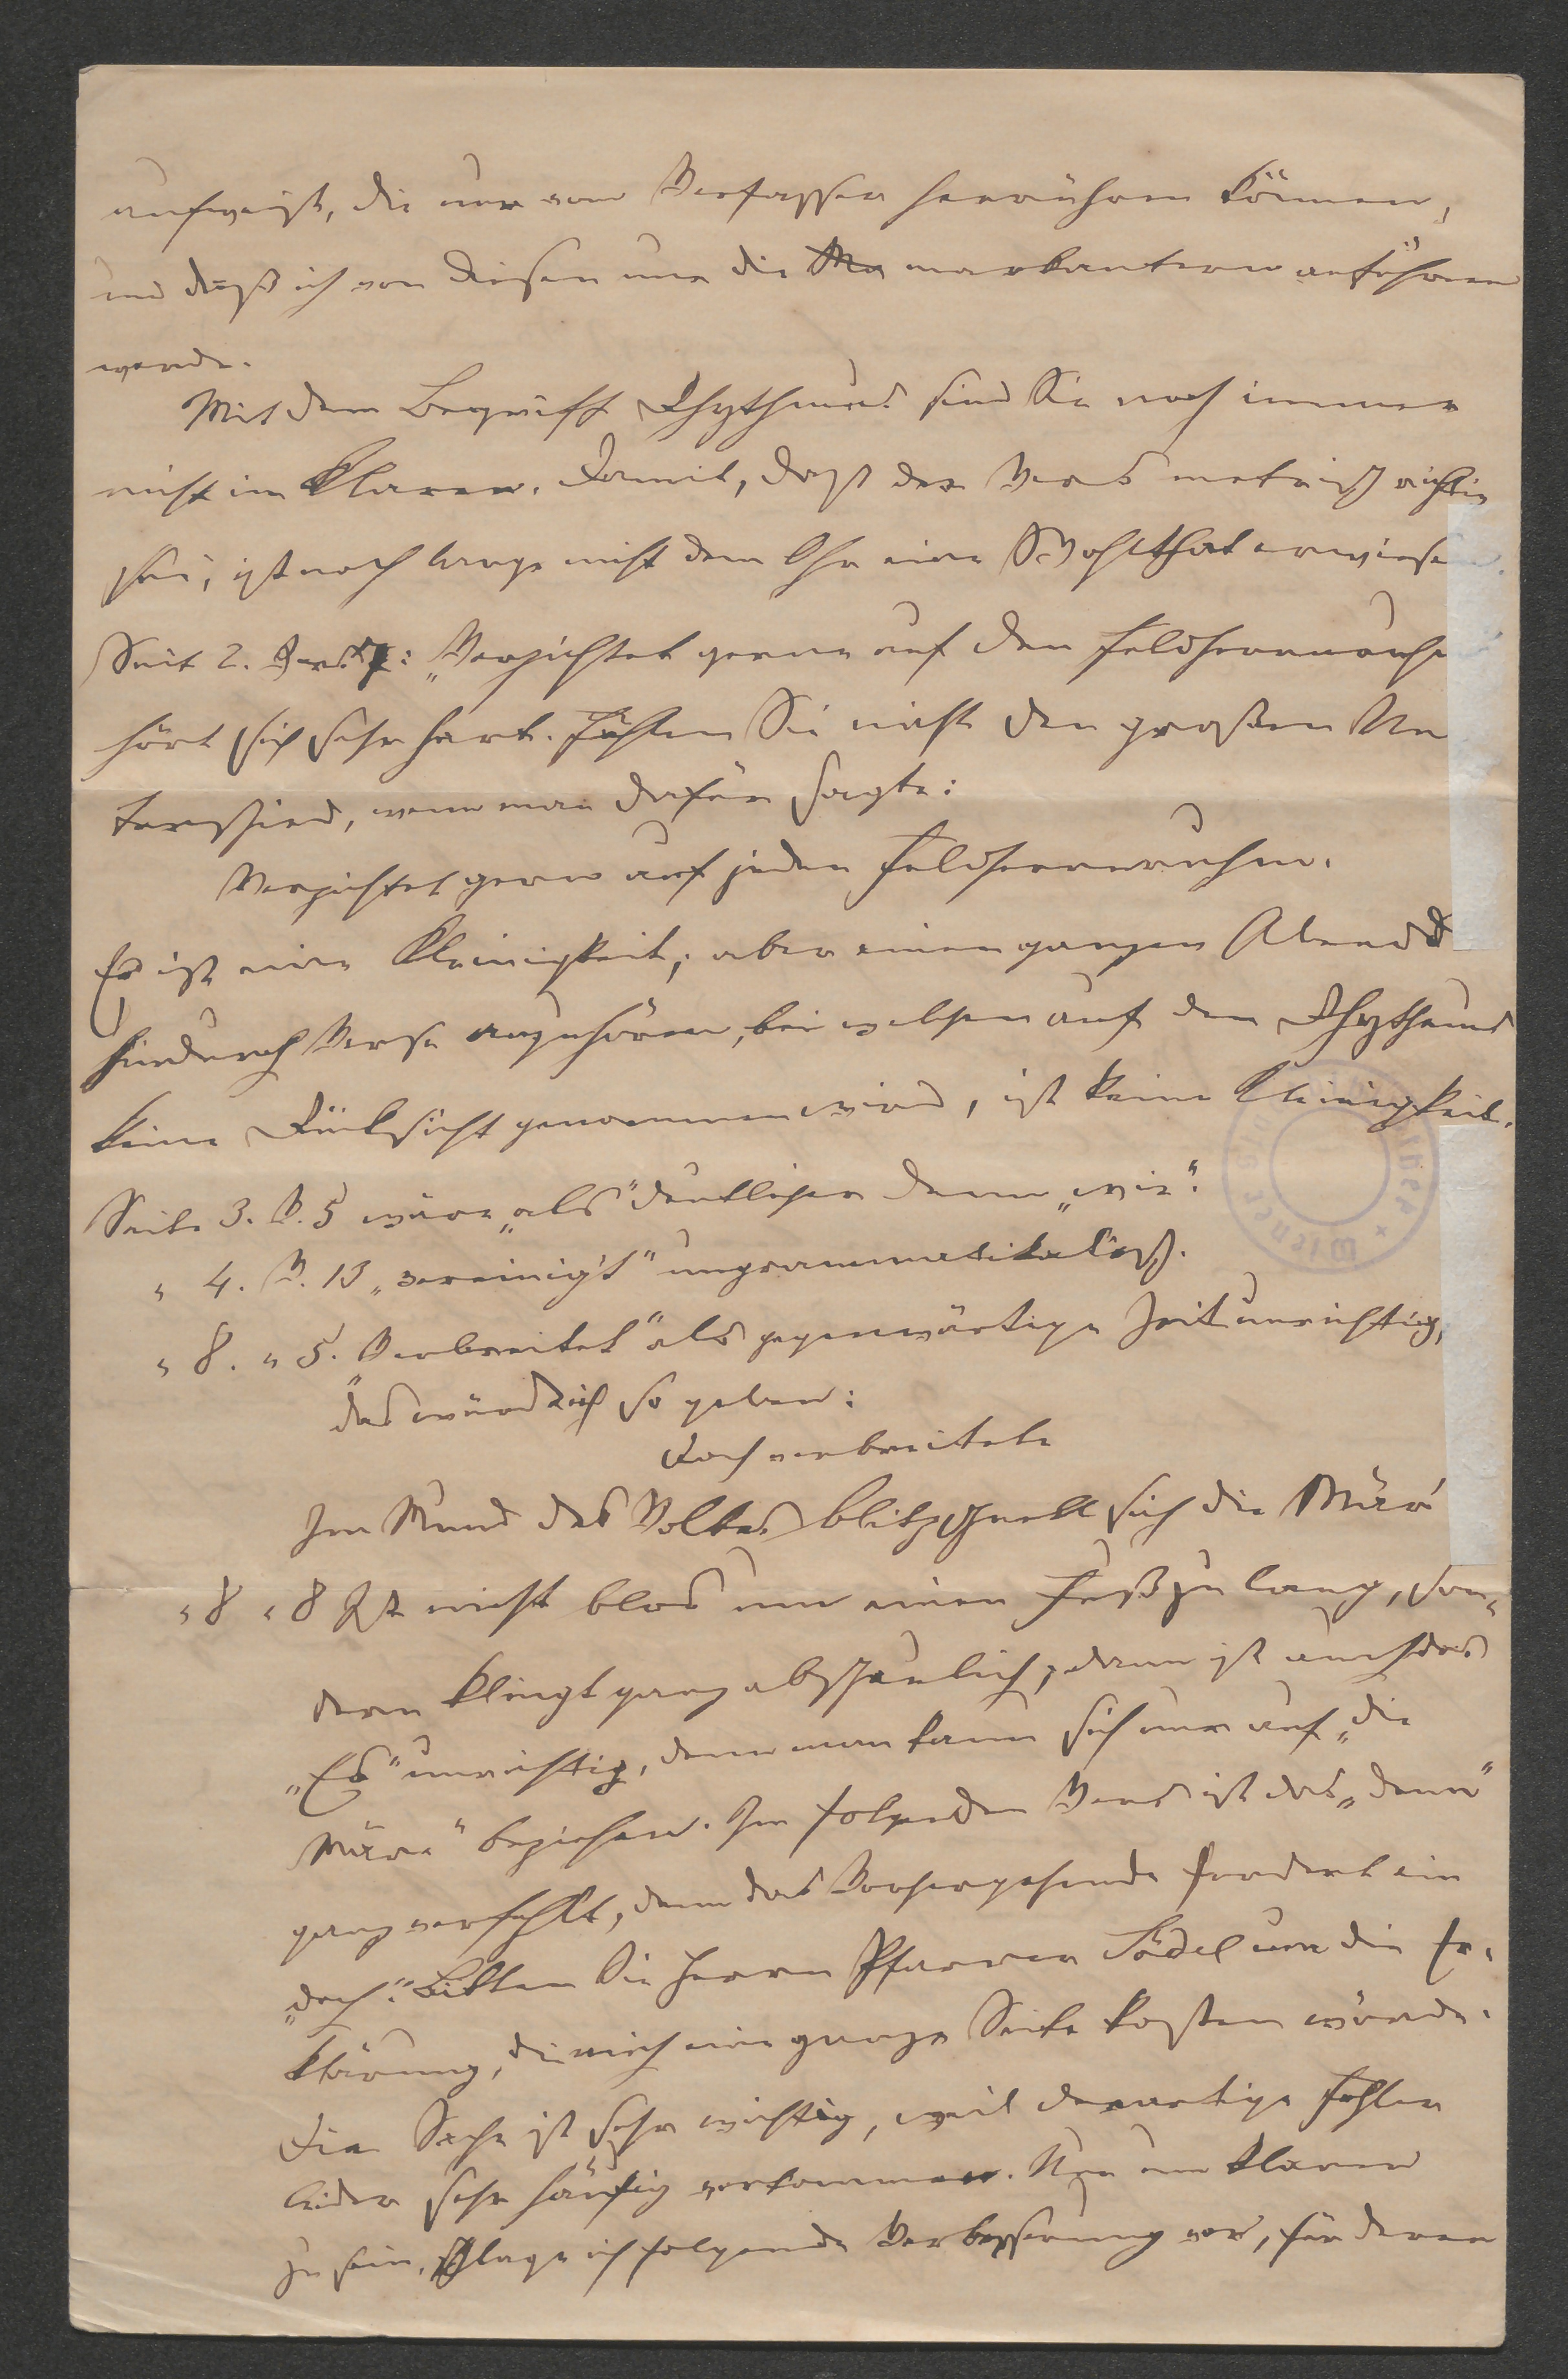 aufweist, die nur vom Verfasser herrühren können,
und daß ich von diesen nur die markantern anführen
werde.
Mit dem Begriff Rhythmus sind Sie noch immer
nicht im Klaren. Damit, daß der Vers metrisch richtig
sei, ist noch lange nicht dem Ohr eine Wohlthat erwiesen.
Seite 2. Vers 7: „Verzichtet gerne auf den Feldherrnruhm
hört sich sehr hart. Fühlen Sie nicht den großen Un
terschied, wenn man dafür sagte:
Verzichtet gern auf jeden Feldherrnruhm.
Es ist eine Kleinigkeit; aber einen ganzen Abend
hindurch Verse anzuhören, bei welchen auf den Rhythmus
keine Rücksicht genommen wird, ist keine Kleinigkeit.
Seite 3. V. 5 wäre „als" deutlicher denn „wie".
" 4. V. 13 „vereinigt" ungrammatikalisch.
" 8. " 5. „Verbreitet" als gegenwärtige Zeit unrichtig,
das würde ich so geben:
Doch verbreitete
Im Mund des Volkes blitzschnell sich die Mär'
" 8 " 8 Ist nicht blos um einen Fuß zu lang, son-
dern klingt ganz abscheulich; dann ist auch das
„Es" unrichtig, denn man kann sich nur auf „die
Märe" beziehen. Im folgenden Vers ist das „denn"
ganz verfehlt, denn das Vorhergehende fordert ein
„doch". Bitten Sie Herrn Pfarrer Södel um die Er-
klärung, die mich eine ganze Seite kosten würde.
Die Sache ist sehr wichtig, weil derartige Fehler
leider sehr häufig vorkommen. Nun um klarer
zu sein, schlage ich folgende Verbesserung vor, für deren
Wiener